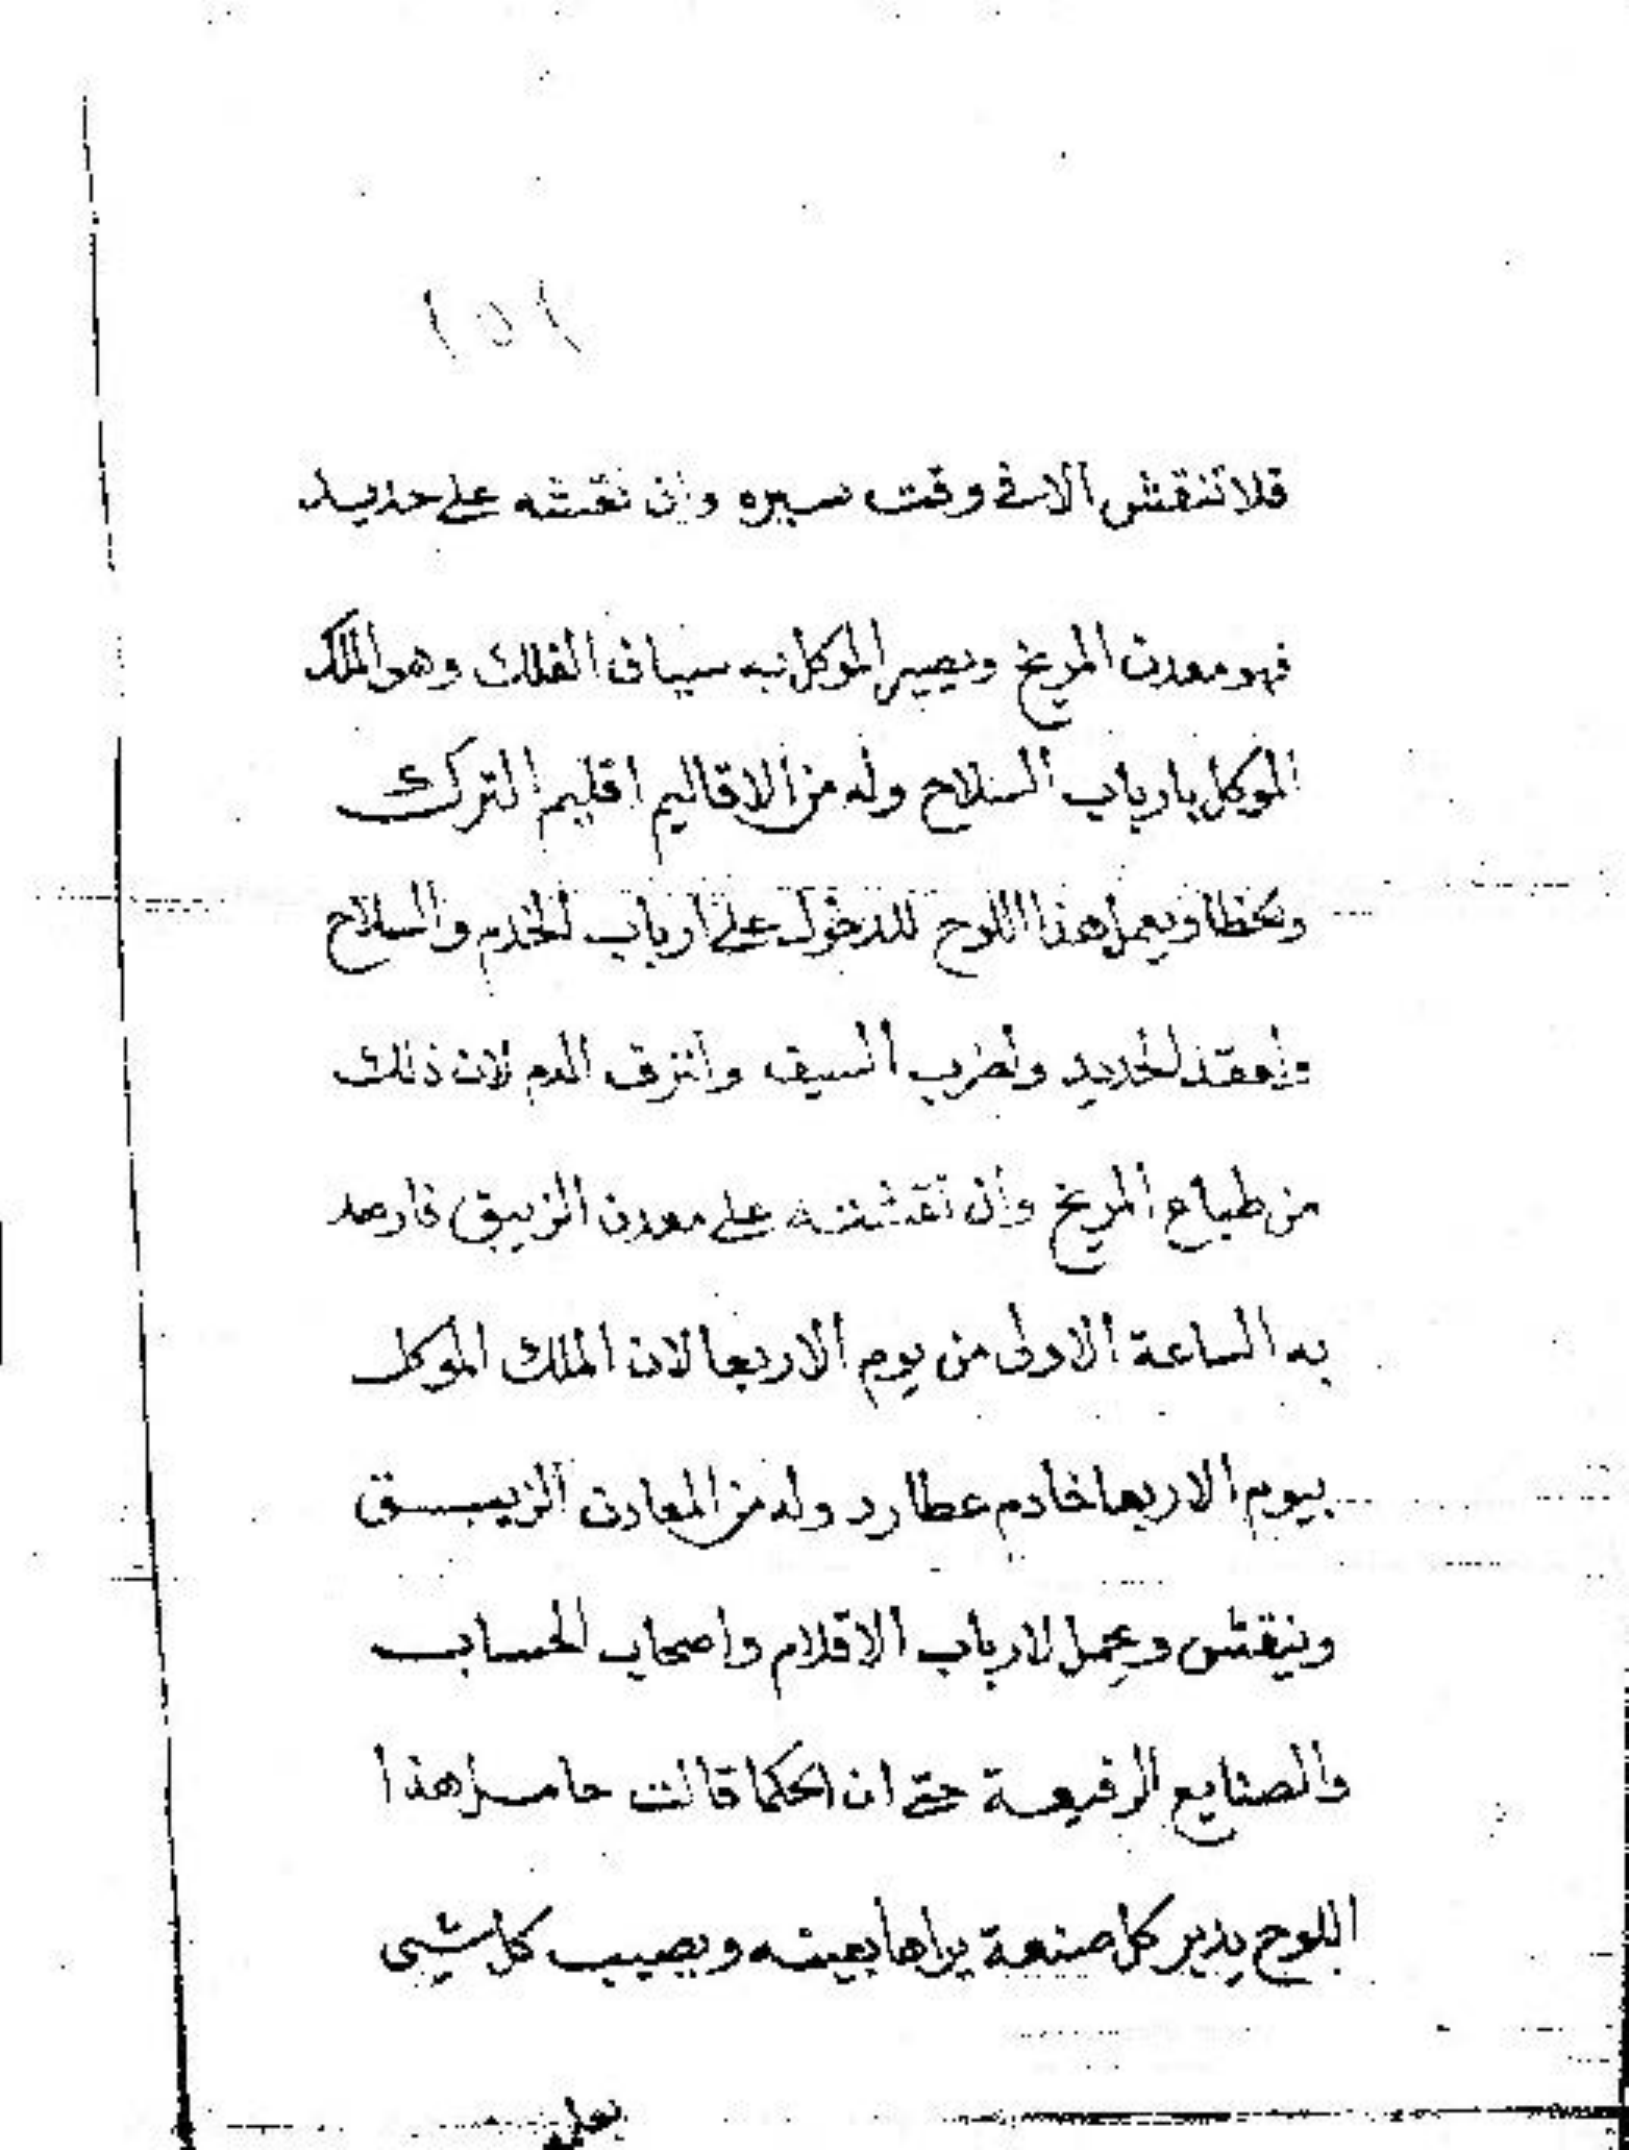 ١٥١
فلا تنقش الا فى وقت سيره وان نقشته على حديد
فهو معدن المريخ ويصير الموكل به سياف الفلك وهو الملك
الموكل بارباب السلاح وله من الاقاليم اقليم الترك
ويعمل هذا اللوح للدخول على ارباب الخدم والسلاح
ولعقد الحديد ولضرب السيف ولنزف الدم لان ذلك
من طباع المريخ وان نقشته على معدن الزيبق فارصد
به الساعة الاولى من يوم الاربعا لان الملك الموكل
بيوم الاربعا خادم عطارد وله من المعادن الزيبق
وينقش وعمل لارباب الاقلام واصحاب الحساب
والصنايع الرفيعة حتى ان الحكما قالت حامل هذا
اللوح يدير كل صنعة يراها بعينه ويصيب كل شيى